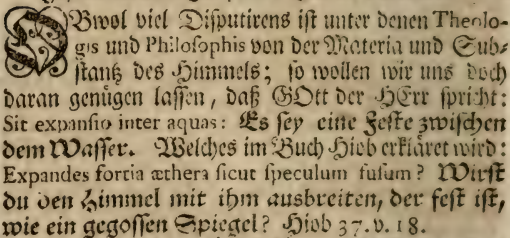 OBwol viel Diſputirens iſt unter denen Theolo-
gis und Philoſophis von der Materia und Sub-
ſtantz des Himmels; ſo wollen wir uns doch
daran genügen laſſen, daß GOtt der HErr ſpricht:
Sit expanſio inter aquas: Es ſey eine Feſte zwiſchen
dem Waſſer. Welches im Buch Hiob erkläret wird:
Expandes fortia æthera ſicut ſpeculum fuſum? Wirſt
du den Himmel mit ihm ausbreiten, der feſt iſt,
wie ein gegoſſen Spiegel? Hiob 37. v. 18.